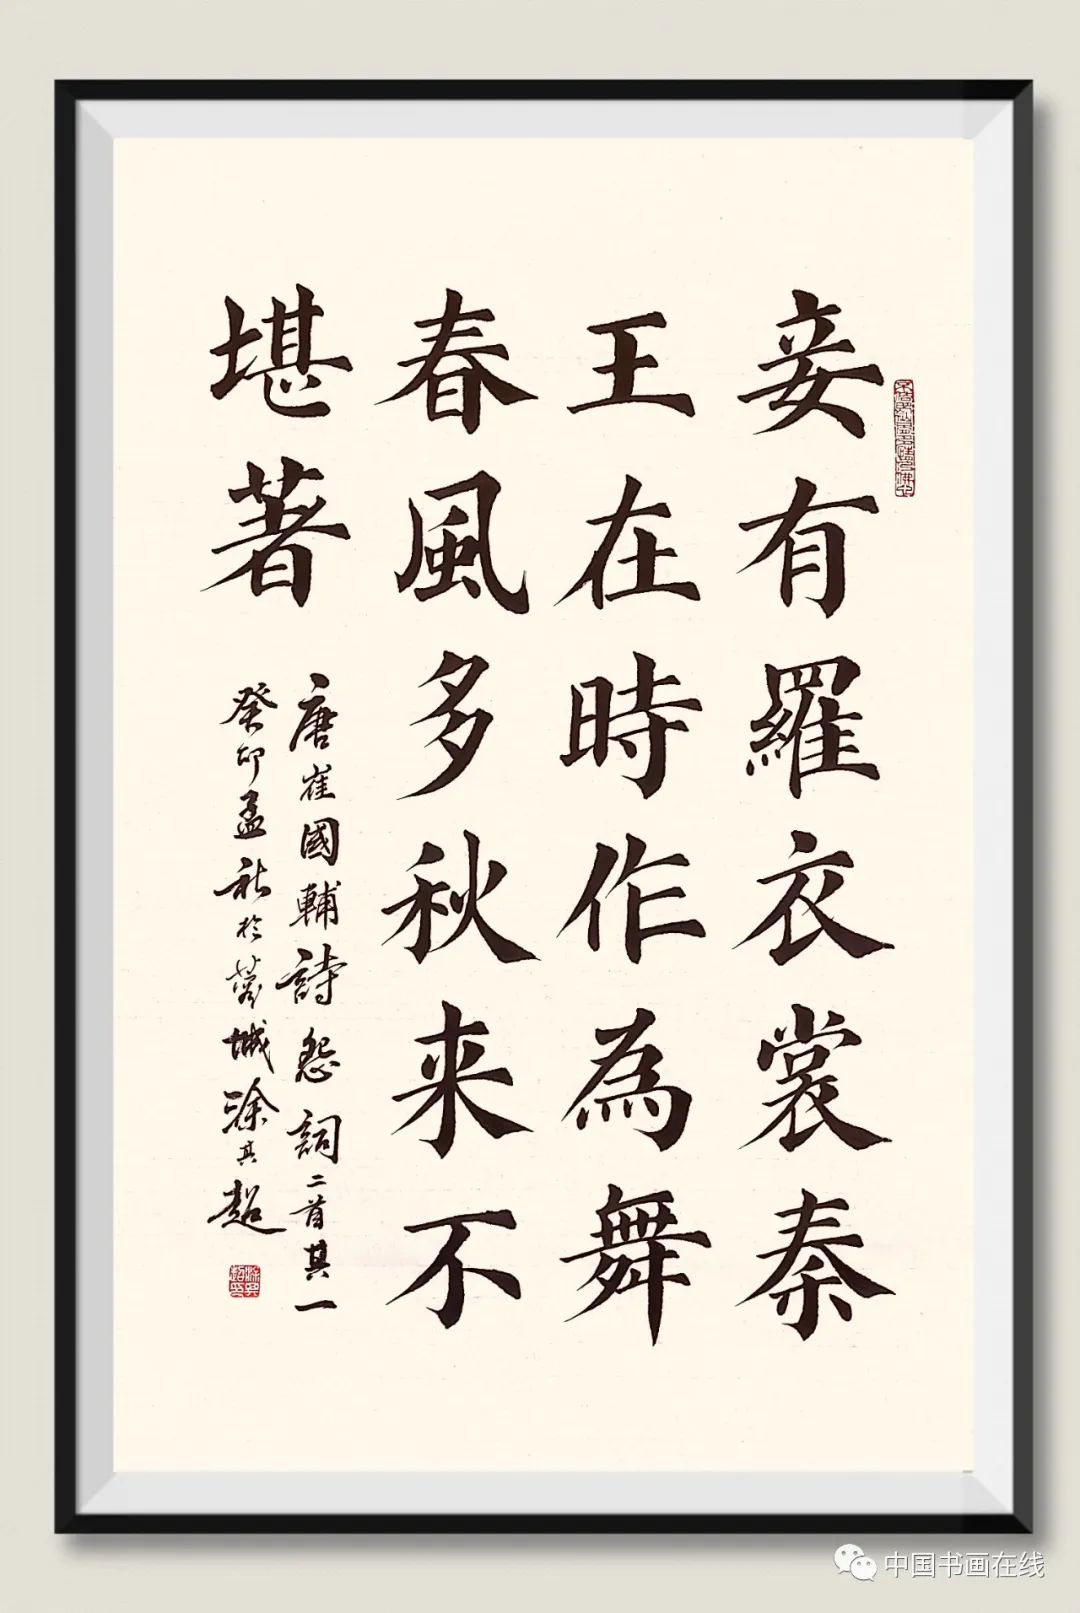 妾有羅衣裳秦
王在時作為舞
春風多秋来不
堪著
唐崔國輔詩怨詞二首其一
癸卯孟秋於蓉城涂其超
中国书画在线